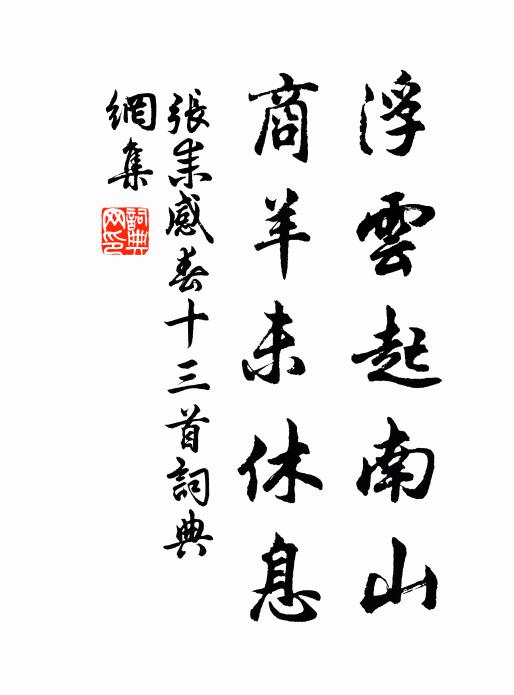 浮雲起南山
商羊未休息
張耒感春十三首詞典
網集
詞典
网印